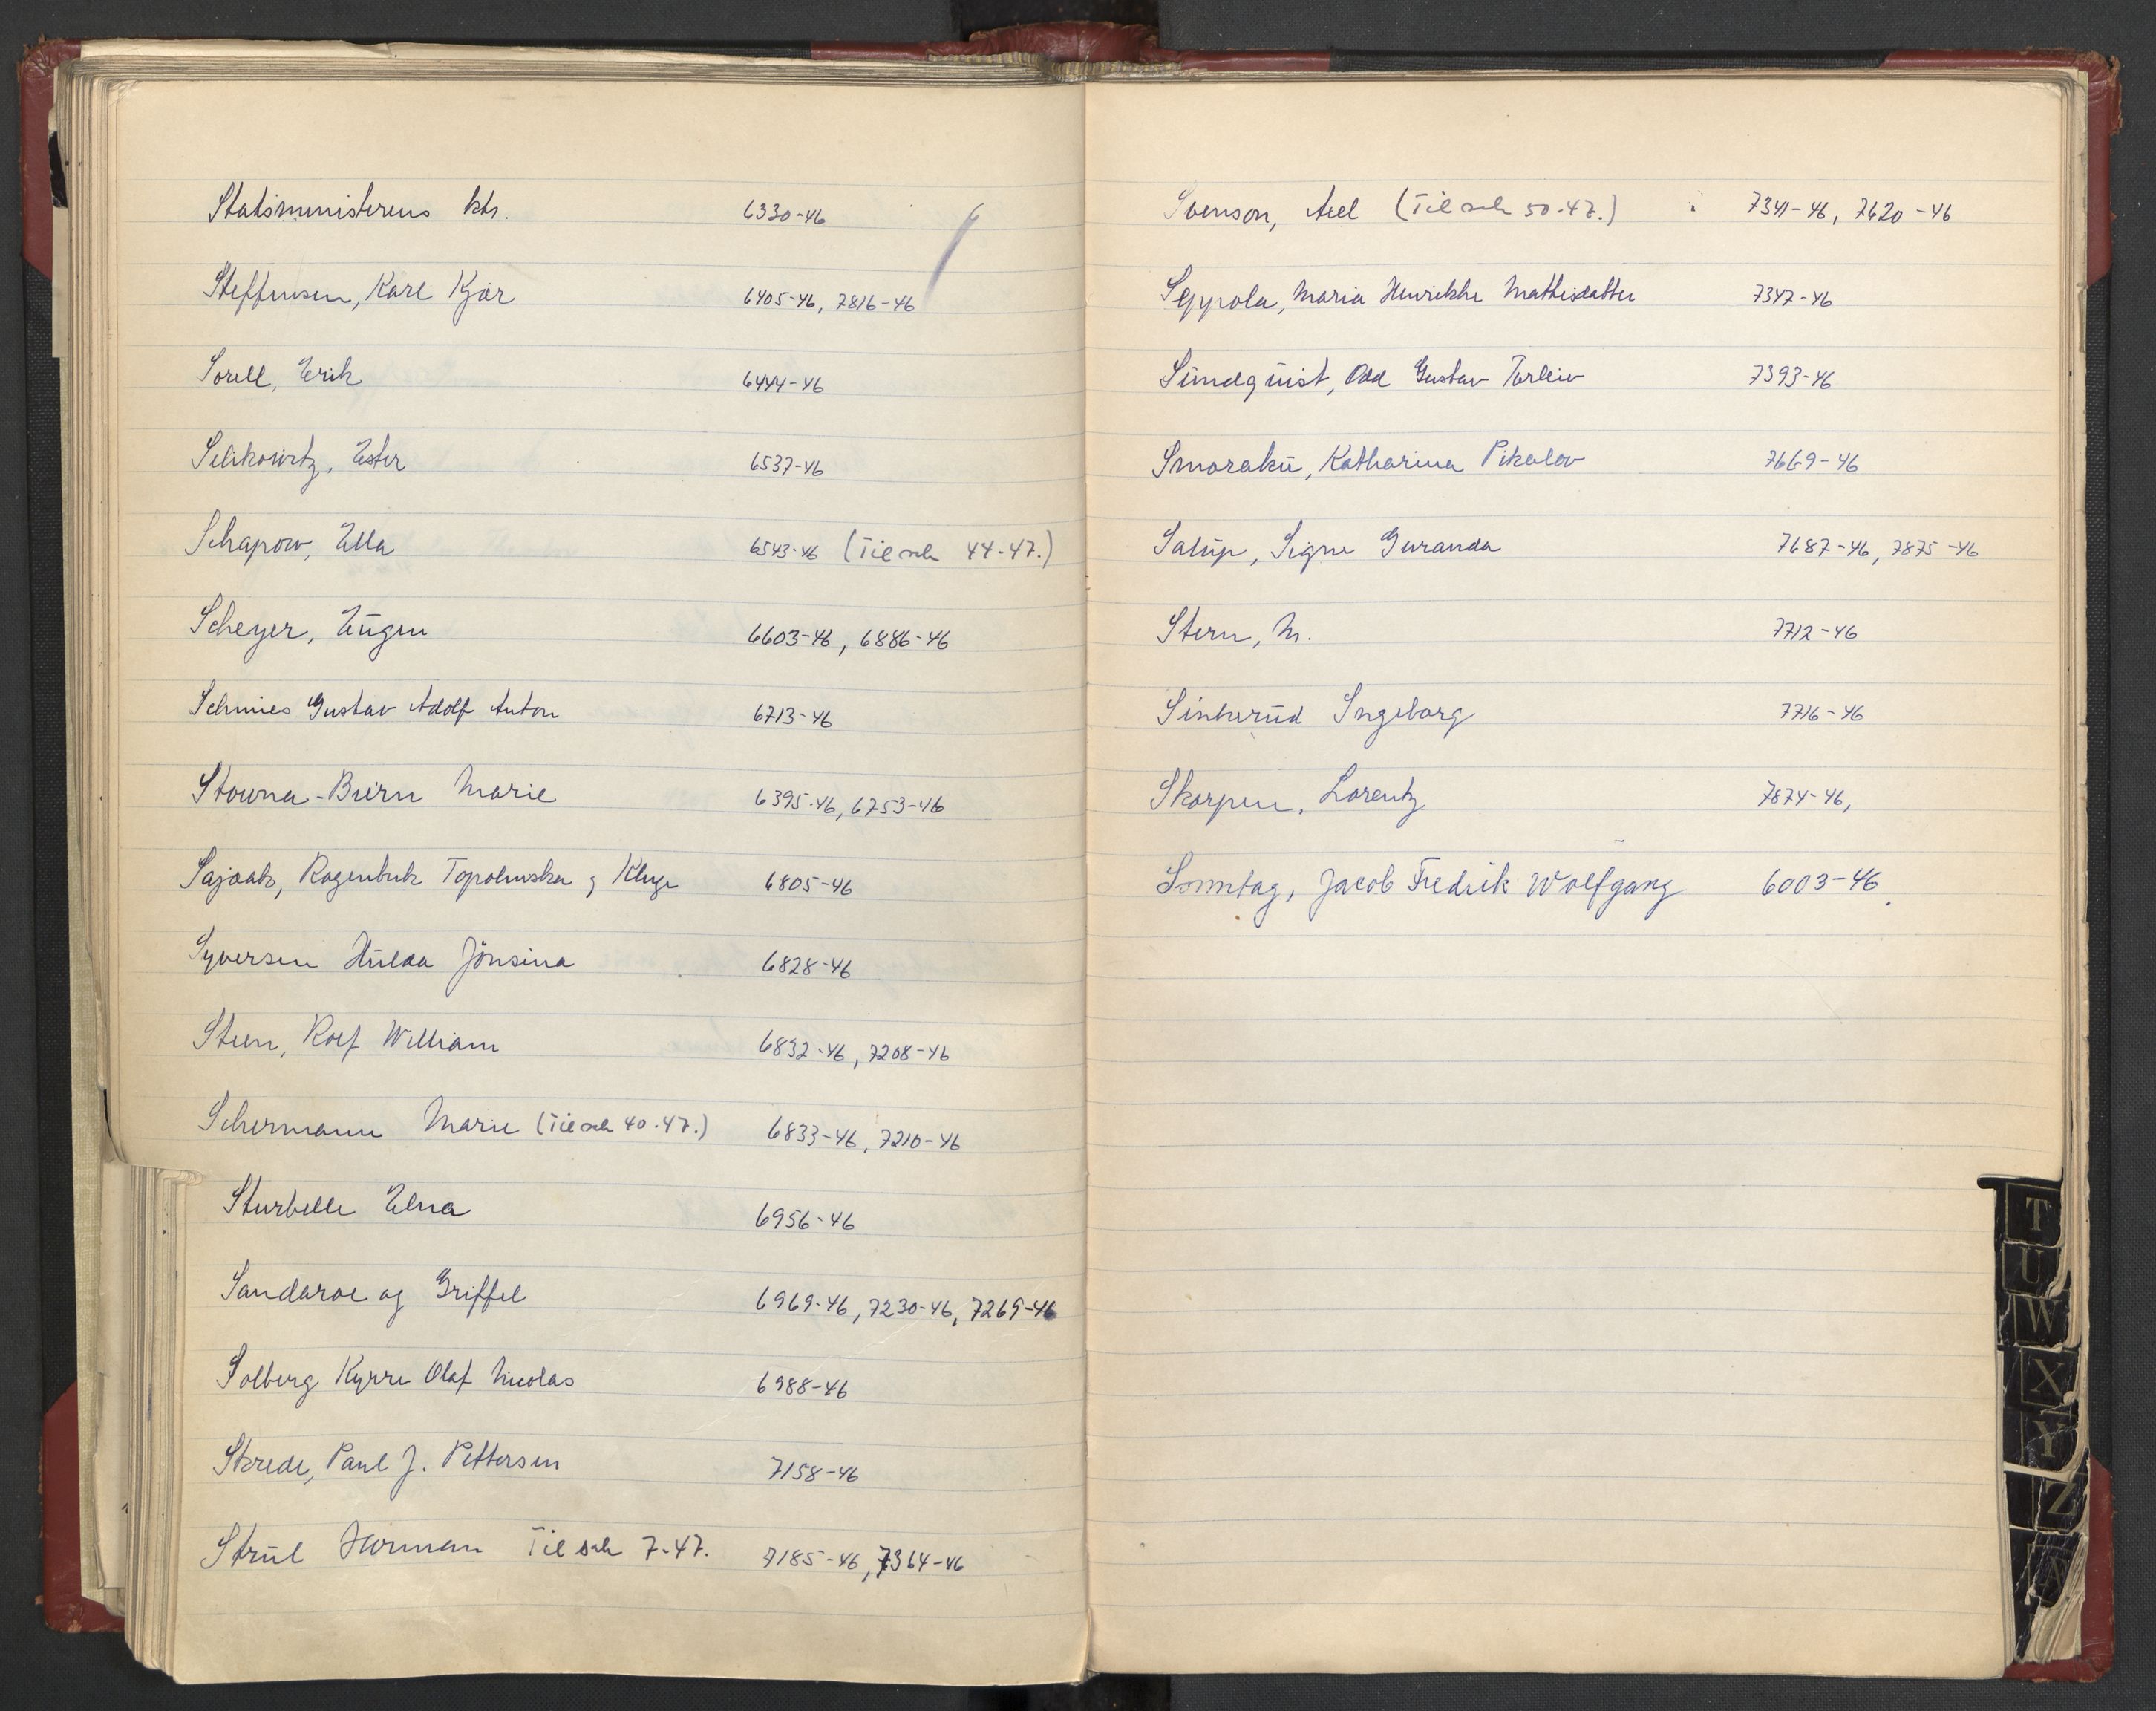 Statsministerens ktr. 6330-46
Steffensen, Kare Kjær 6405-46, 7816-46
Sorell, Erik 6444-46
Selikowitz, Ester 6537-46
Schapow, Ella 6543-46 (Til sak 44-47.)
Scheyer, Eugen 6603-46, 6886-46
Schmies Gustav Adolf Anton 6713-46
Marie 6395-46, 6753-46
Topolinska og Kluge 6805-46
Syversen Hulda Jönsina 6828-46
Steen, Rolf William 6832-46, 7208-46
Schermann Marie (Til sak 40-47.) 6833-46, 7210-46
Elna 6956-46
Sandaroe og Griffel 6969-46, 7230-46, 7269-46
Solberg Kyrre Olaf Nicolas 6988-46
Skrede, Paul J. Pettersen 7158-46
Strul Herman Til sak 7-47. 7185-46, 7364-46
Svenson, Axel (Til sak 50-47.) 7341-46, 7620-46
Seppola, Maria Henrikke Mathisdatter 7347-46
Sundquist, Odd Gustav Torleiv 7393-46
Smoraku, Katharina Pikalov 7669-46
Salup, Signe Guranda 7687-46, 7875-46
Stern, M. 7712-46
Sinkerud Ingeborg 7716-46
Skorpen, Lorentz 7874-46,
Sonntag, Jacob Fredrik Wolfgang 6003-46.
T
U
W
X
Y
Z